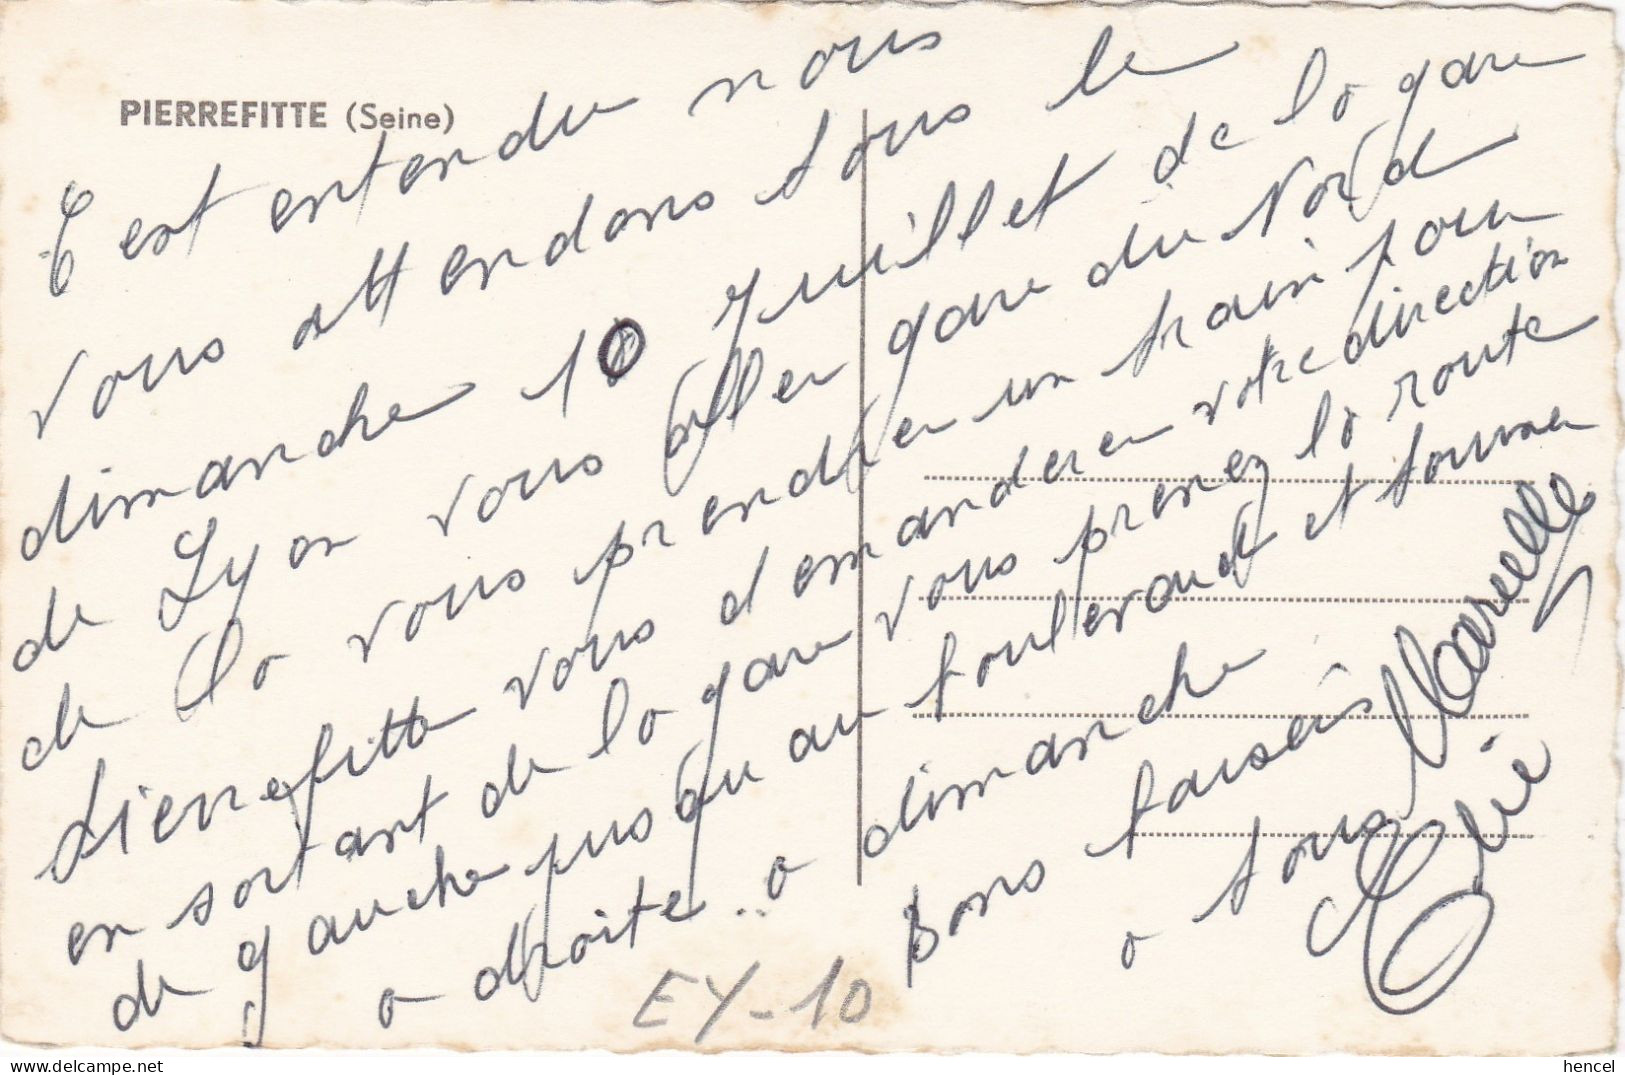 PIERREFITTE (Seine)
C est entendu nous
vous attendons tous le
dimanche 10 Juillet de la gare
de Lyon vous aller gare du Nord
de la vous prendren un train pour
Pierrefitte vous demanderen votre direction
en sortant de la gare vous prenez la route
de gauche jusqu au feu et tourner
a droite .. a dimanche
Bons baisers
a tous Marcelle
EY-10
delcampe.net
hencel